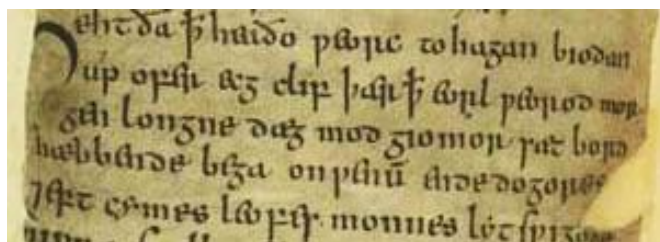 eht ða ꝥ heaðo ƿeorc to hagan biodan
up ofer ecg clif þær ꝥ eorl ƿeorod mor
gen longne dæg mod giomor sæt bord
hæbbende bega on ƿenū ende dogores
⁊ eft cymes leofes monnes lyt sƿigode